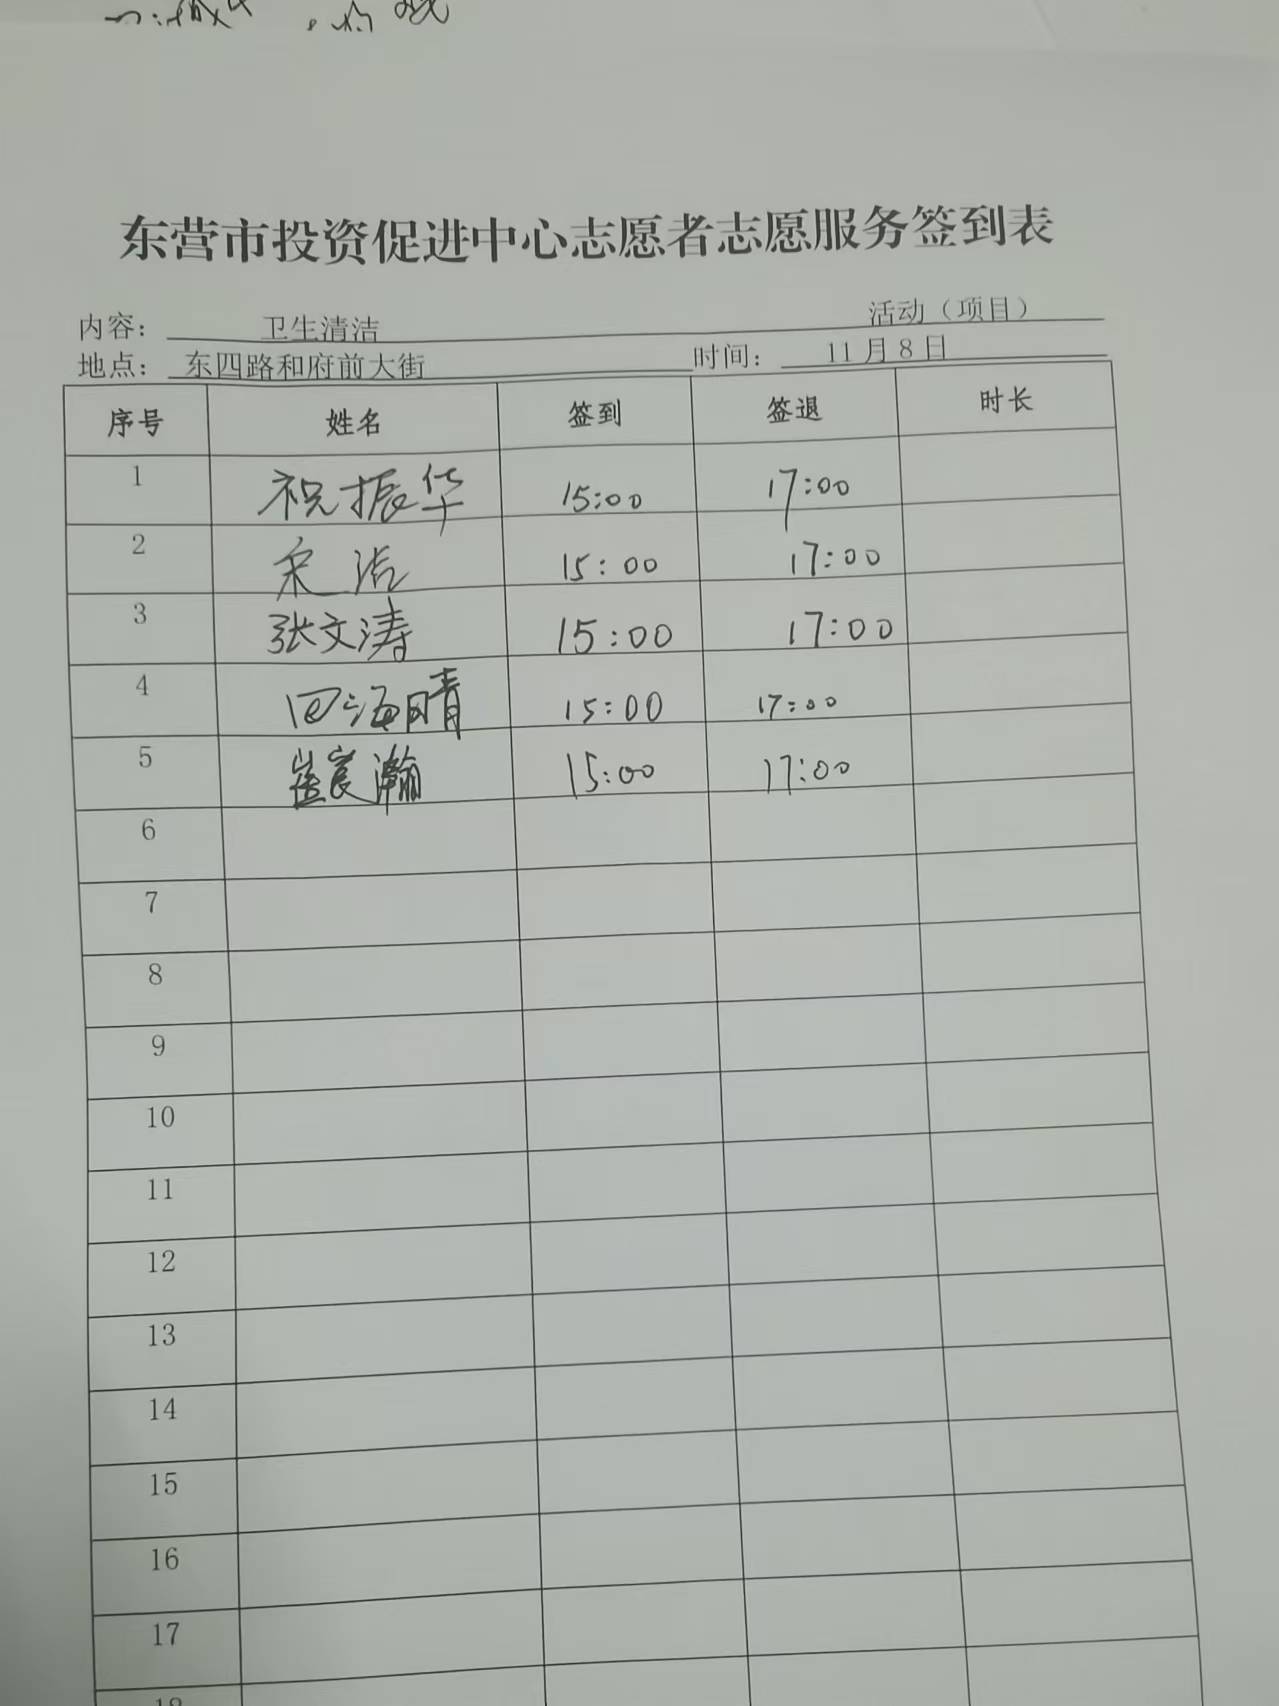 东营市投资促进中心志愿者志愿服务签到表
内容： 卫生清洁 活动（项目）
地点： 东四路和府前大街 时间： 11月8日
序号 姓名 签到 签退 时长
1 祝振华 15:00 17:00
2 宋洁 15:00 17:00
3 张文涛 15:00 17:00
4 田海晴 15:00 17:00
5 崔宸瀚 15:00 17:00
6
7
8
9
10
11
12
13
14
15
16
17
18